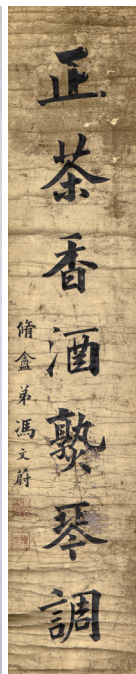 正茶香酒熟琴調
脩盦弟馮文蔚